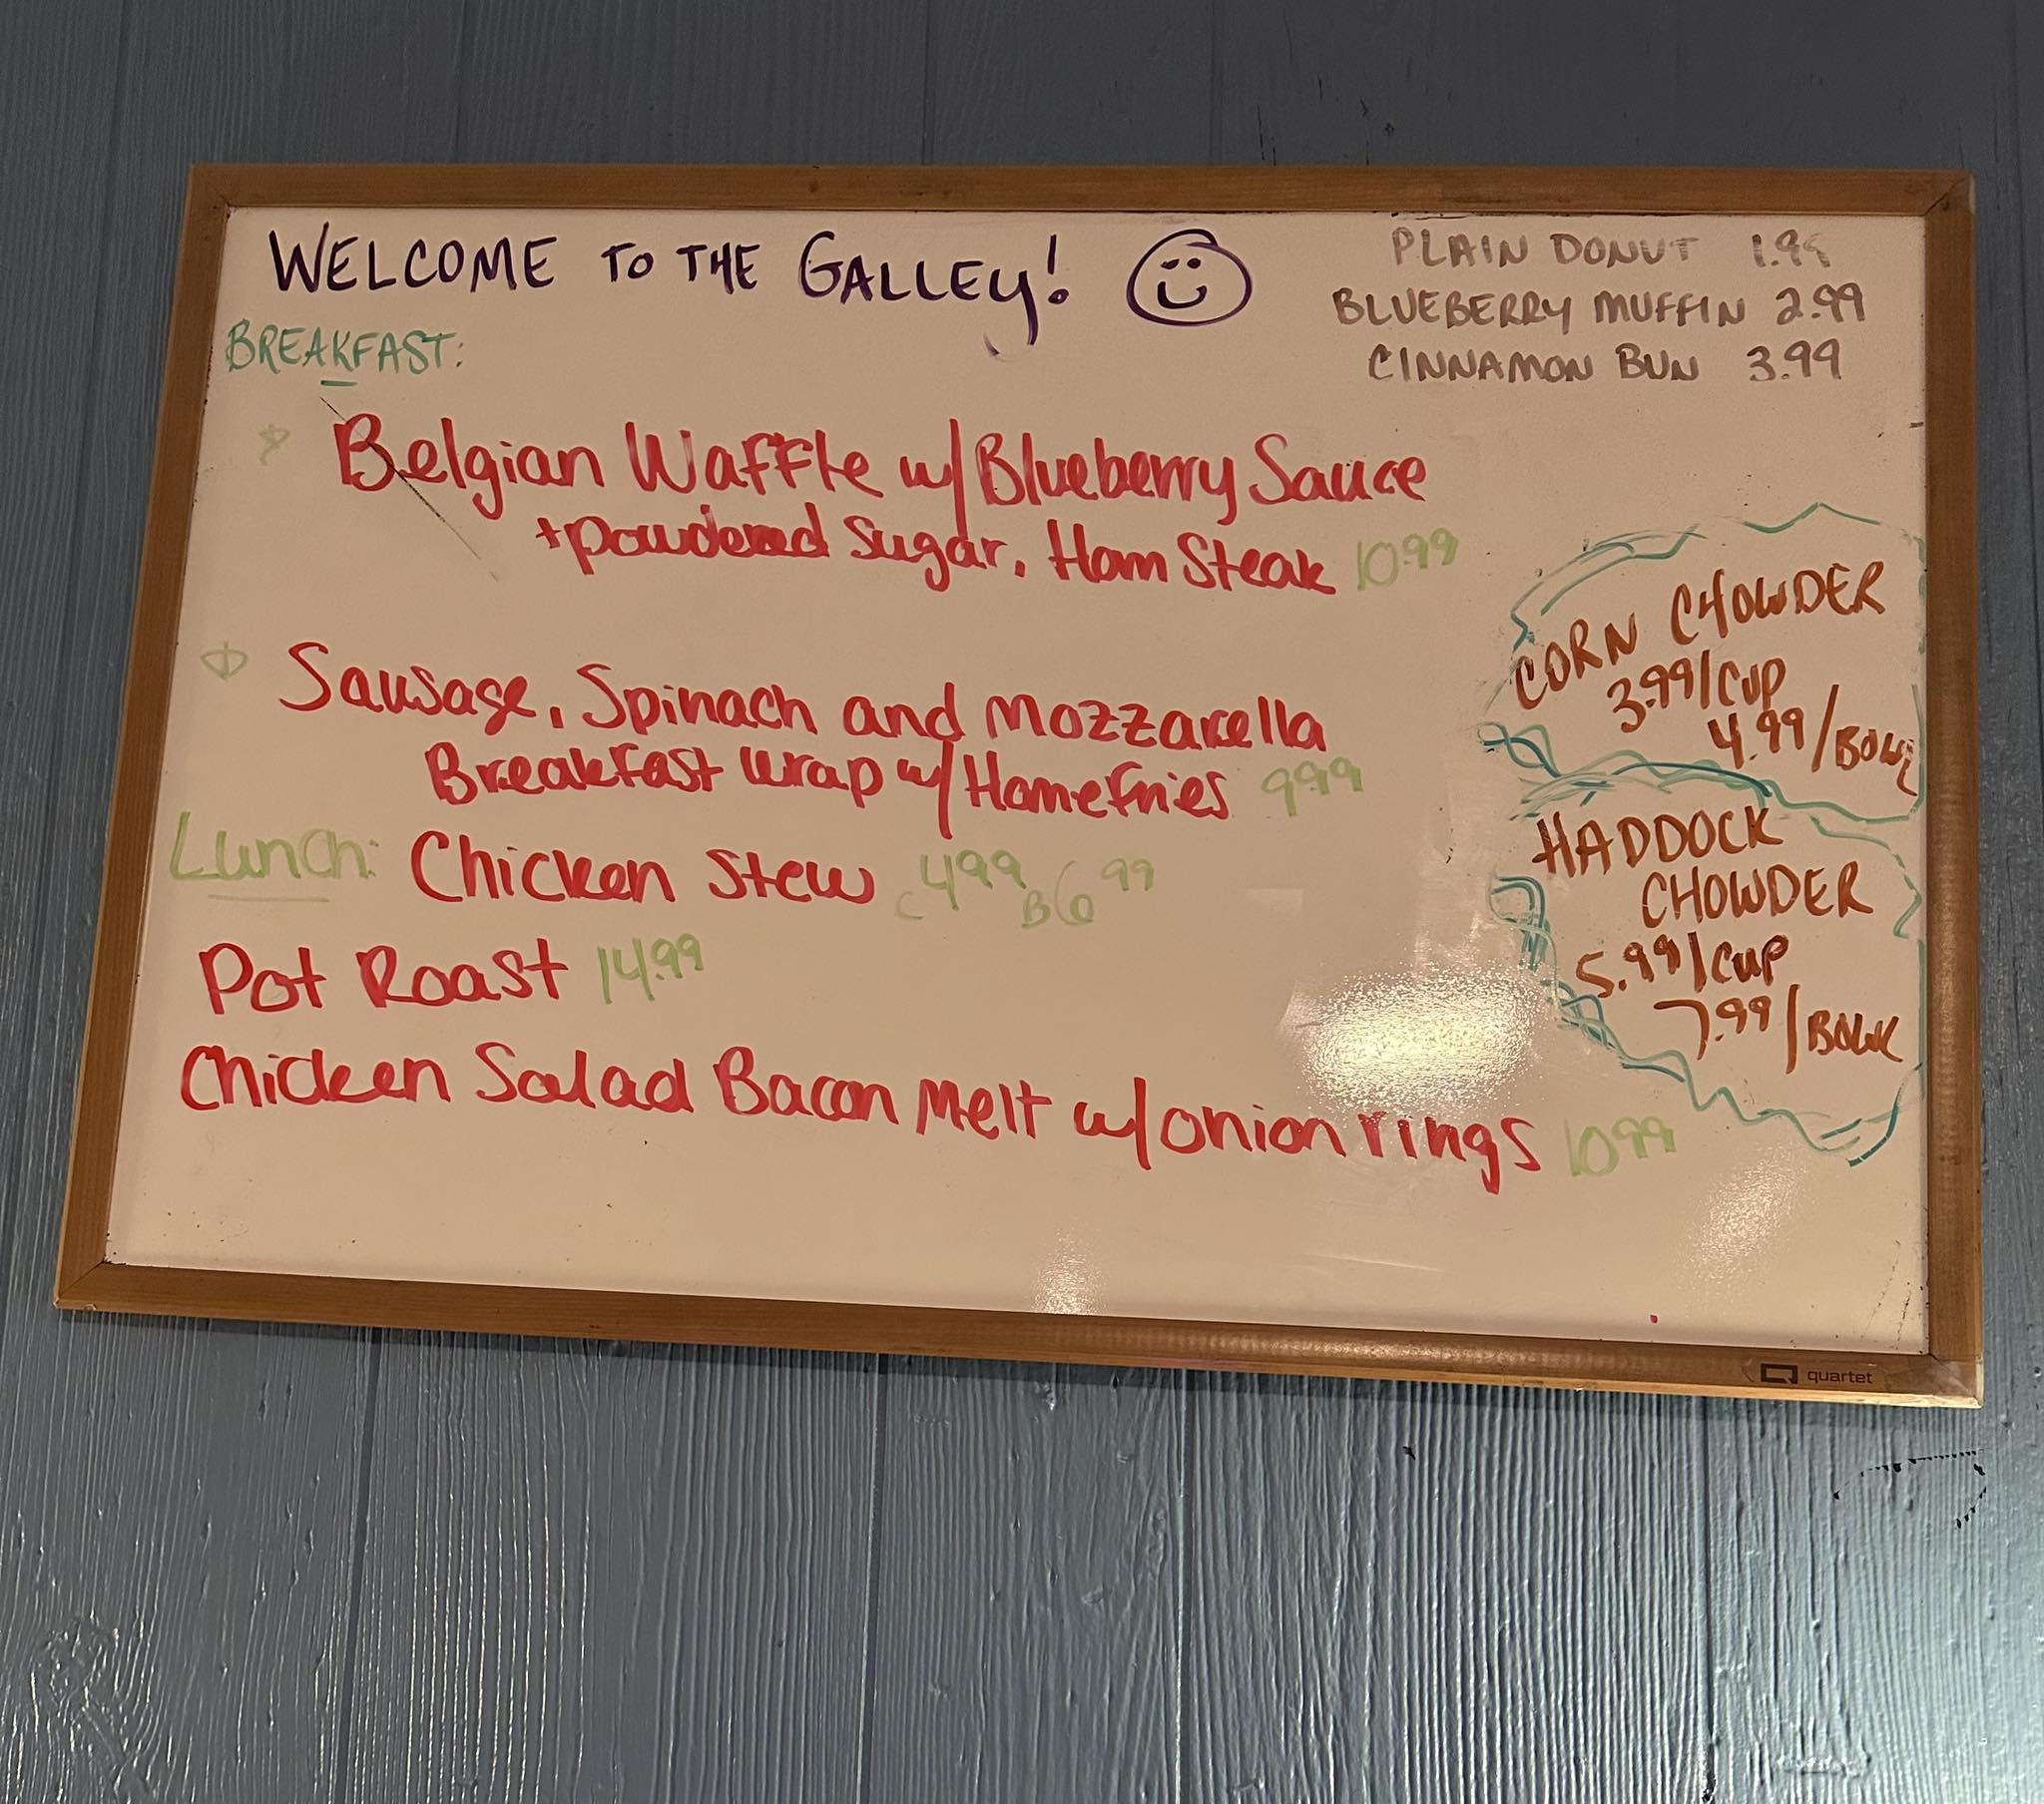 WELCOME TO THE GALLEY!
PLAIN DONUT 1.99
BLUEBERRY MUFFIN 2.99
CINNAMON BUN 3.99
BREAKFAST:
Belgian Waffle w/ Blueberry Sauce
+ powdered Sugar, Ham Steak 10.99
Sausage, Spinach and Mozzarella
Breakfast Wrap w/ Homefries 9.99
Lunch: Chicken Stew C 4.99 B 6.99
Pot Roast 14.99
Chicken Salad Bacon Melt w/ onion rings 10.99
CORN CHOWDER
3.99/CUP
4.99/BOWL
HADDOCK
CHOWDER
5.99/CUP
7.99/BOWL
quartet